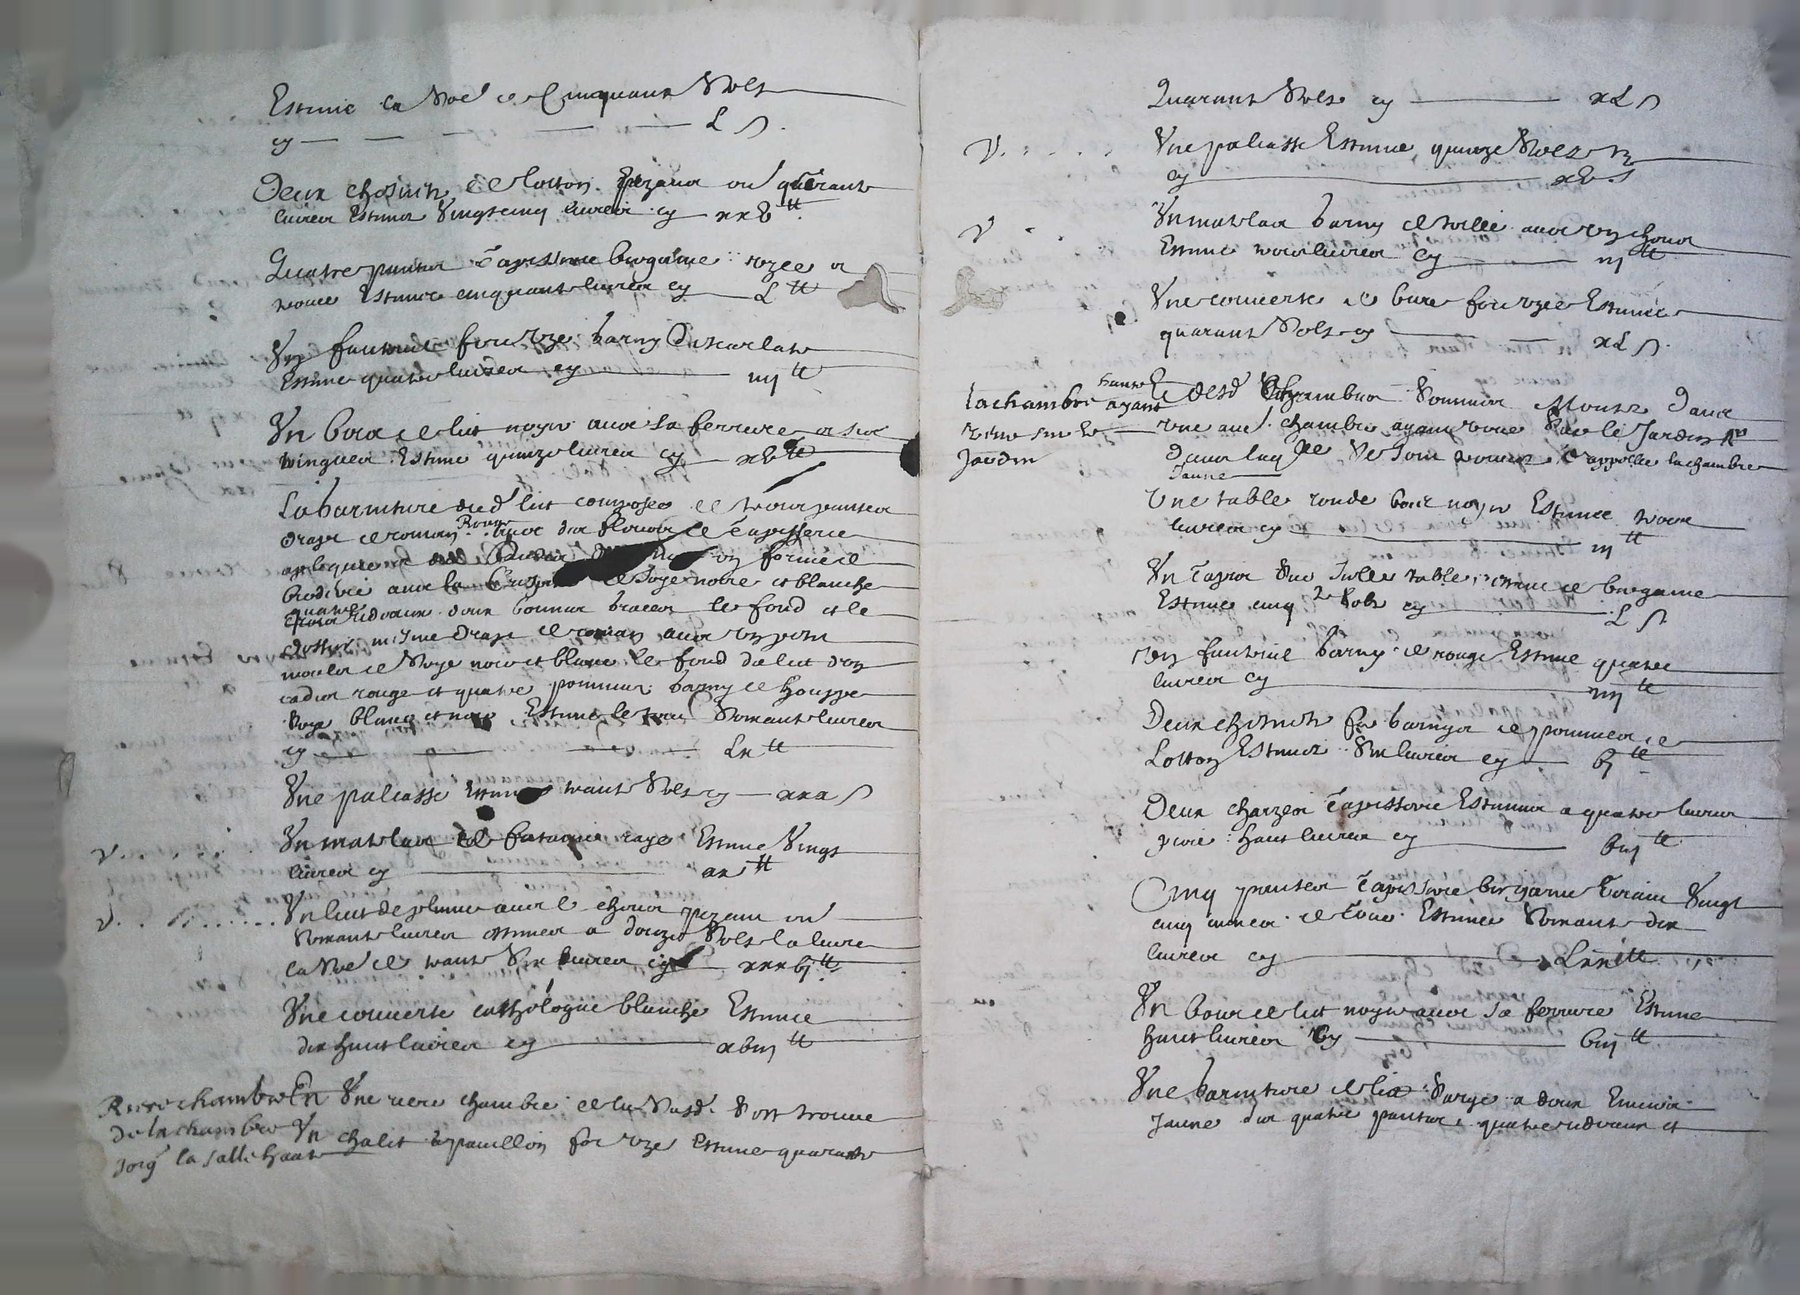 Estimé la Noe de Cinquant Solz
cy L s.
Deux chesnetz de lotton pezant ou quarante
livres Estimes Vingtcinq livres cy xxV tt
Quatre pantes Tapisserie bergame uzee et
rouee Estimee cinquante livres cy L tt
Un fauteuil fort uze barny
Estime quatre livres cy iiij tt
Un bois de lit noyer avec sa ferrure et ses
tringues Estimé quinze livres cy xV tt
La barniture dud lit composee de trois pantes
drapt de roman Rouge avec des fleurs de Tapisserie
en forme de
broderie avec la de soye noire et blanche
quatre ridveaux deux bonnes le fond et le
dossier mesme drapt de roman avec un petit
molet de Soye noir et blanc le fond du lit d'un
cadis rouge et quatre pommes barny de houppe
Soye blanc et noir Estime le tout Soixante livres
cy Lx tt
Une paliasse Estimee trante Solz cy xxx s
V. Un matelas de futaine raye Estime Vingt
livres cy xx tt
V. Un lict de plume avec le chevet pezant ou
Soixante livres estimes a douze Solz la livre
la Noe de trante Six livres cy xxxVj tt
Une couverte cathologne blanche Estimee
dix huit livres cy xViij tt
Riere chambre En Une riere chambre de la Susd. Sest trouvé
de la chambre Un chalit a pavillon fort uze Estimé quarante
joig la salle haute
Quarante Solz cy xL s
V. Une paliasse Estimee quinze Solz
cy xV s
V. Un matelas barny de toille avec un chevet
Estime trois livres cy iij tt
Une couverte de bure fort uzee Estimee
quarante Solz cy xL s.
la chambre haute De lad Chambre Sommes Montez dans
ayant veue sur le une aut. chambre ayant veue Sur le Jardin
Jardin Dans laqlle Se sont trouvez appellee la chambre
Jaune
Une table ronde bois noyer Estimee trois
livres cy iij tt
Un Tapis Sur lad table de bergame
Estimé cinqte Solz cy L s
Un fauteuil barny de rouge Estimé quatre
livres cy iiij tt
Deux chesnetz fer barnys de pommes de
Lotton Estimes Six livres cy Vj tt
Deux chaizes Tapisserie Estimees a quatre livres
piece huit livres cy Viij tt
Cinq pantes Tapisserie bergame Vingt
cinq cannes de tour Estimee Soixante dix
livres cy Lxx tt
Un bois de lit noyer avec sa ferrure Estimé
huit livres cy Viij tt
Une barniture de lit Sarge a deux Envers
Jaune dux quatre pantes quatre ridveaux et